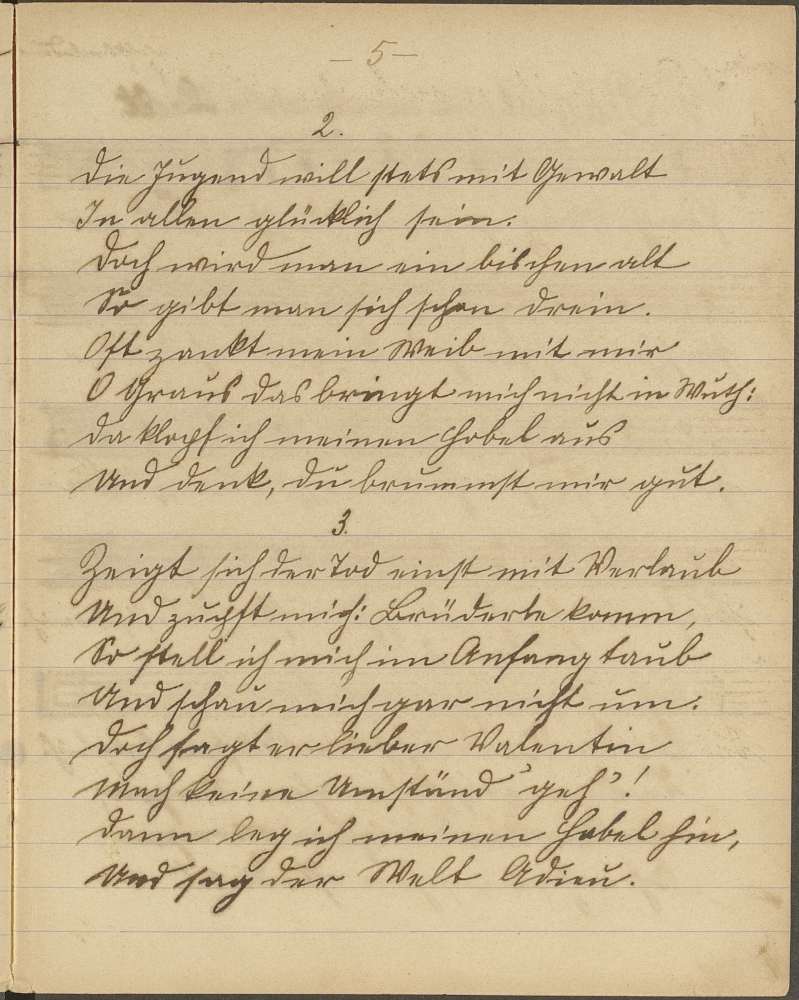 — 5 —
2.
Die Jugend will stets mit Gewalt
In allen glücklich sein.
Doch wird man ein bischen alt
So gibt man sich schon drein.
Oft zankt mein Weib mit mir
O Graus das bringt mich nicht in Wuth:
Da klopf ich meinen Hobel aus
Und denk, du brummst mir gut.
3.
Zeigt sich der Tod einst mit Verlaub
Und zupft mich: Brüderle komm,
So stell ich mich im Anfang taub
Und schau mich gar nicht um.
Doch sagt er lieber Valentin
Mach keine Umständ' geh'!
Dann leg ich meinen Hobel hin,
Und sag der Welt Adieu.